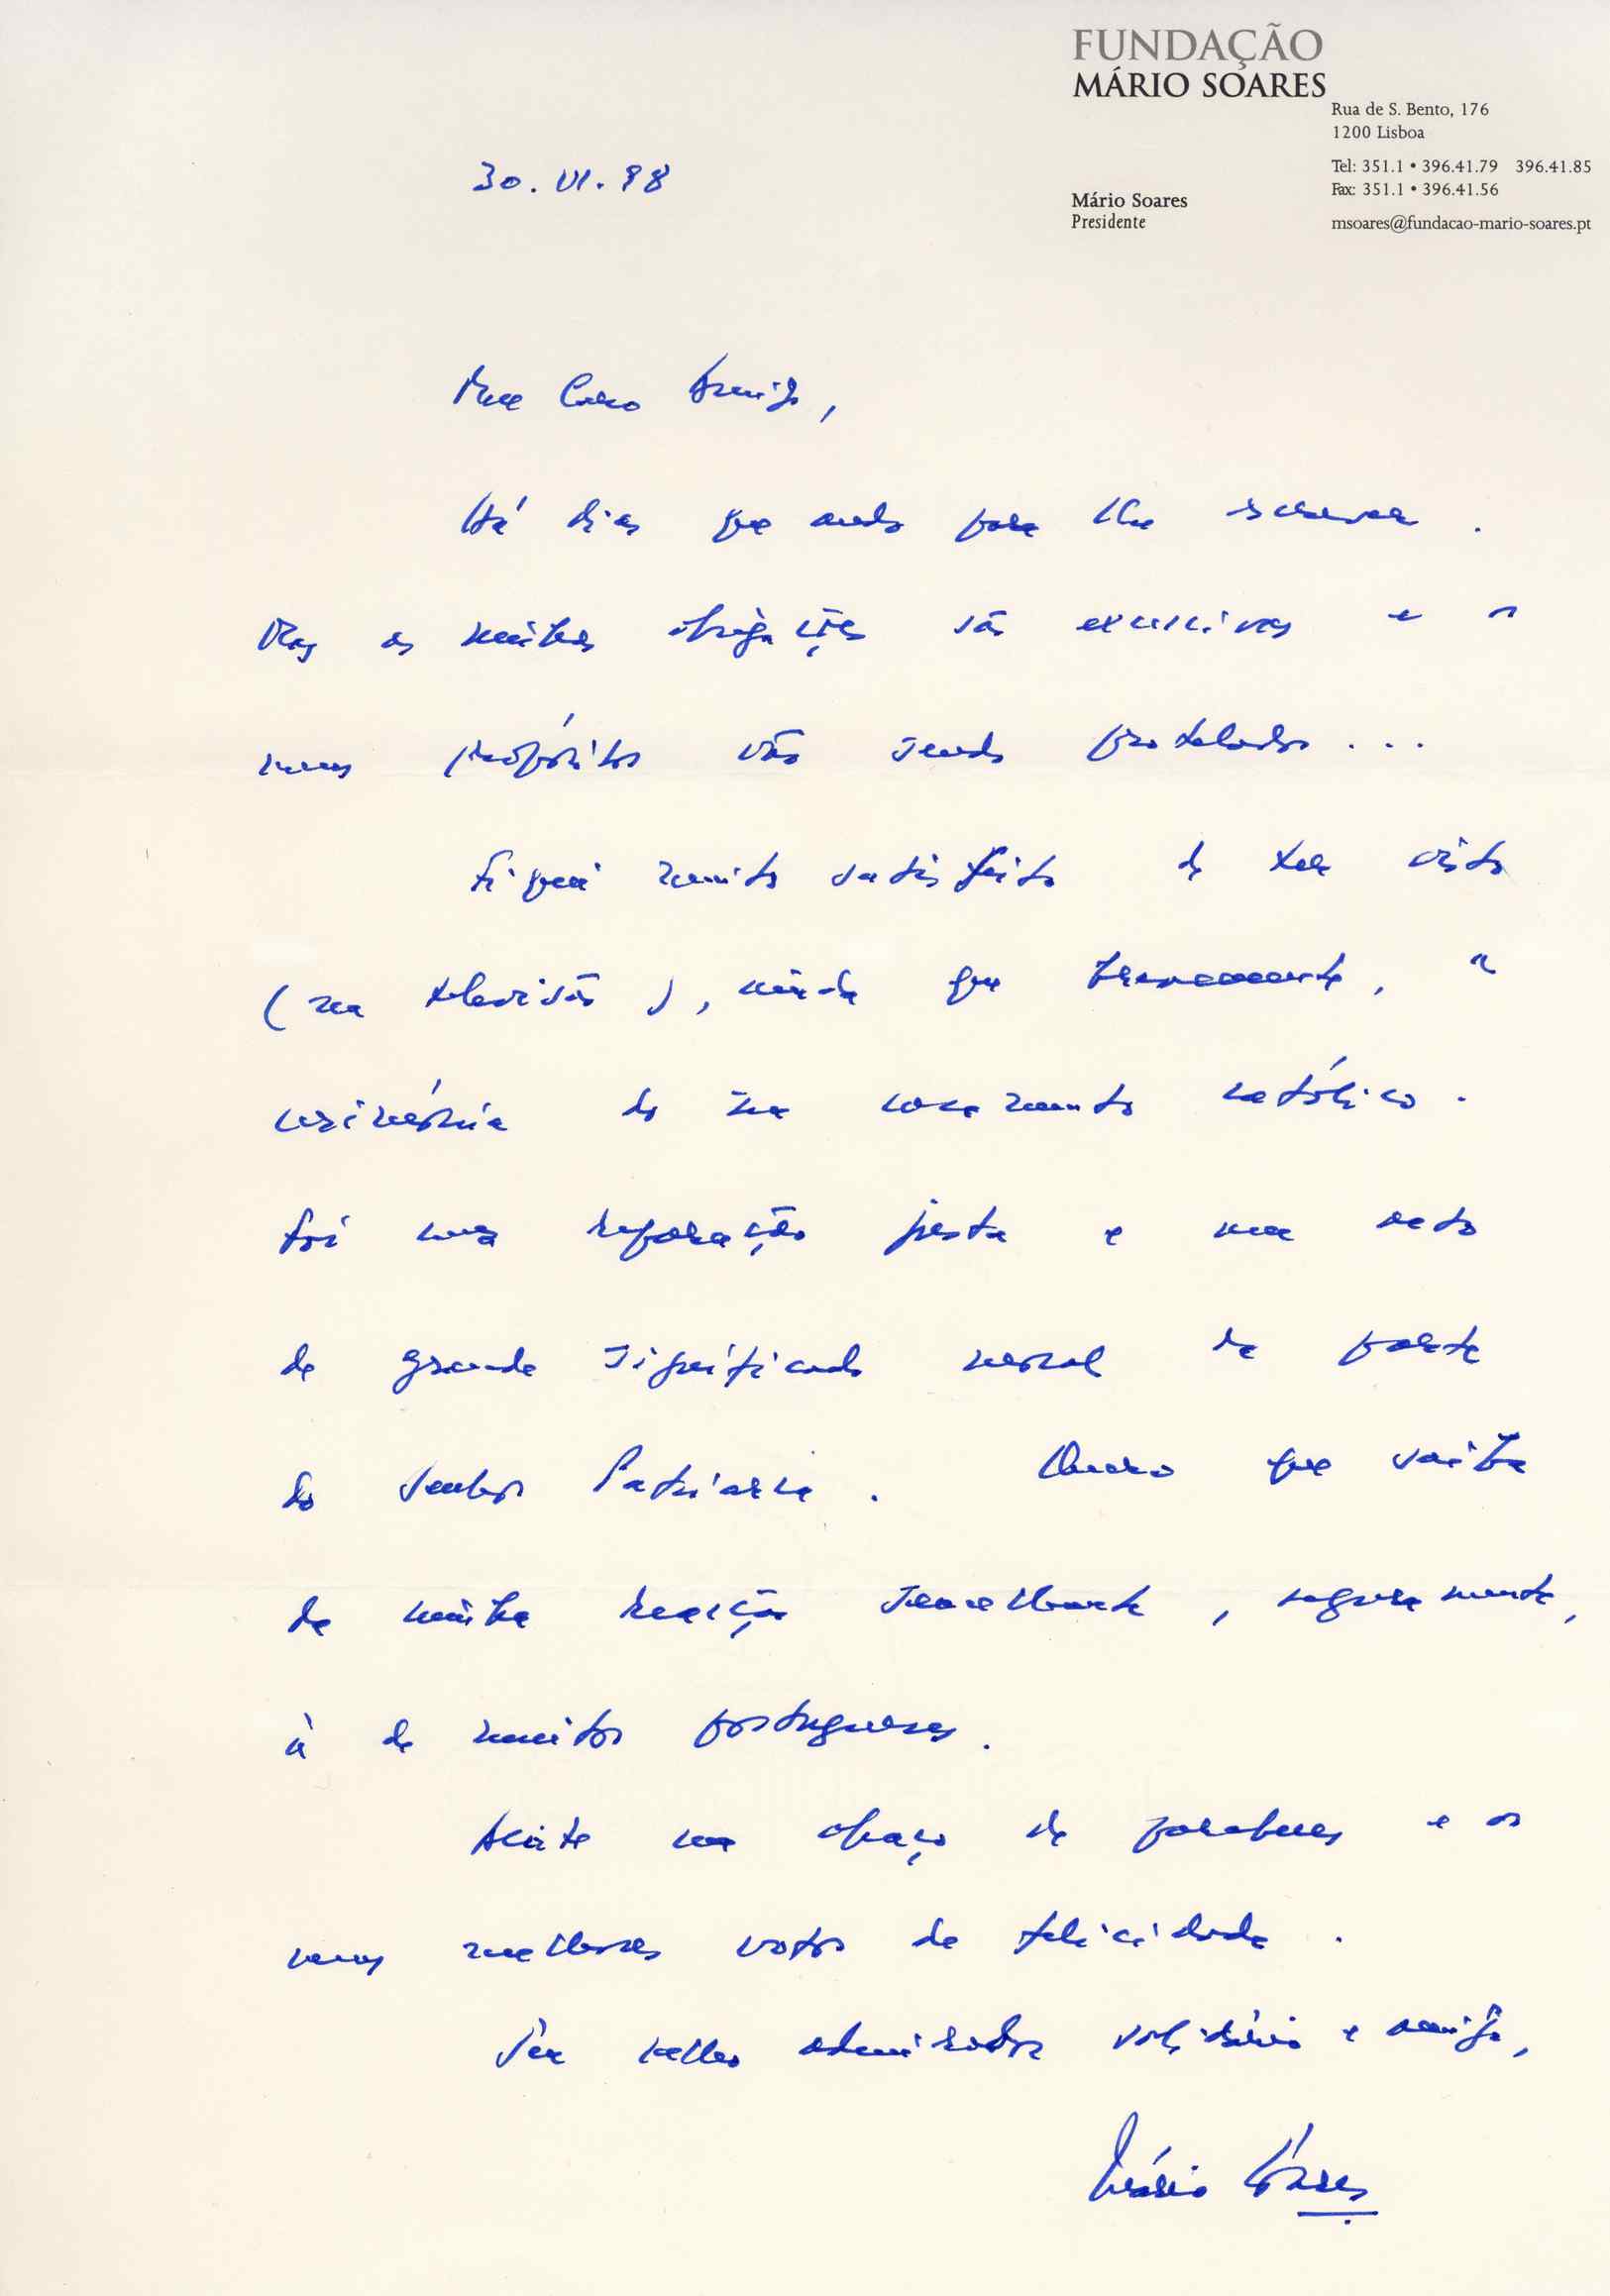 FUNDAÇÃO
MÁRIO SOARES
Rua de S. Bento, 176
1200 Lisboa
Tel: 351.1 • 396.41.79 396.41.85
Fax: 351.1 • 396.41.56
Mário Soares
Presidente
msoares@fundacao-mario-soares.pt
30.VI.98
Meu Caro Amigo,
Há dias que ando para lhe escrever.
Mas as minhas obrigações são excessivas e os
meus propósitos vão sendo protelados...
Fiquei muito satisfeito de ter visto
(na televisão), ainda que brevemente, a
cerimónia do seu casamento católico.
Foi uma reparação justa e um acto
de grande significado moral da parte
do Senhor Patriarca. Quero que saiba
da minha reacção semelhante, seguramente,
à de muitos portugueses.
Aceite um abraço de parabens e os
meus melhores votos de felicidade.
Seu velho admirador solidário e amigo,
Mário Soares